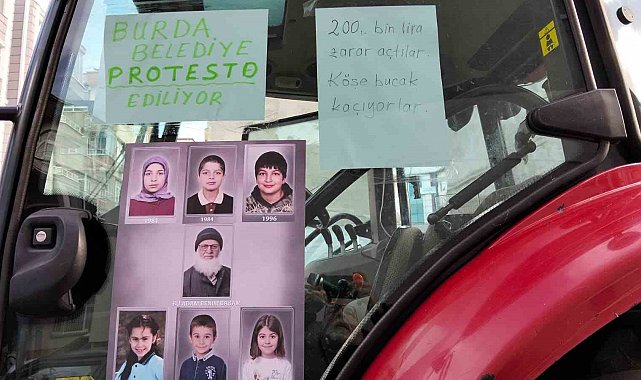 BURDA
BELEDİYE
PROTESTO
EDİLİYOR
200.. bin lira
zarar açtılar.
Köşe bucak
kaçıyorlar.
1981 1984 1996
BU ADAM BENİM BABAM